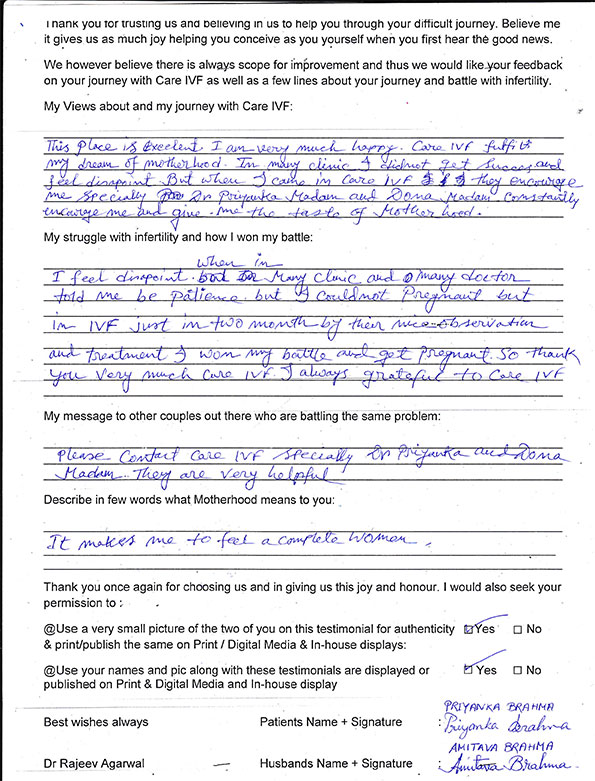 Thank you for trusting us and believing in us to help you through your difficult journey. Believe me
it gives us as much joy helping you conceive as you yourself when you first hear the good news.
We however believe there is always scope for improvement and thus we would like your feedback
on your journey with Care IVF as well as a few lines about your journey and battle with infertility.
My Views about and my journey with Care IVF:
This place is Excelent. I am very much happy. Care IVF fulfill
my dream of motherhood. In many clinic I didnot get succes and
feel disapoint But when I came in Care IVF they encourge
me specially Dr Priyanka Madam and Dona Madam constantly
encourge me and give me the taste of Motherhood.
My struggle with infertility and how I won my battle:
when in
I feel disapoint. Many clinic and many doctor
told me be patience but I couldnot Pregnant but
in IVF just in two month by their nice observation
and treatment I won my battle and get pregnant. So thank
you very much Care IVF. I always grateful to Care IVF
My message to other couples out there who are battling the same problem:
Please Contact Care IVF specially Dr Priyanka and Dona
Madam. They are very helpful
Describe in few words what Motherhood means to you:
It makes me to feel a complete Woman.
Thank you once again for choosing us and in giving us this joy and honour. I would also seek your
permission to :
@Use a very small picture of the two of you on this testimonial for authenticity ☑Yes ☐ No
& print/publish the same on Print / Digital Media & In-house displays:
@Use your names and pic along with these testimonials are displayed or ☑Yes ☐ No
published on Print & Digital Media and In-house display
PRIYANKA BRAHMA
Best wishes always Patients Name + Signature : Priyanka Brahma
AMITAVA BRAHMA
Dr Rajeev Agarwal Husbands Name + Signature : Amitava Brahma